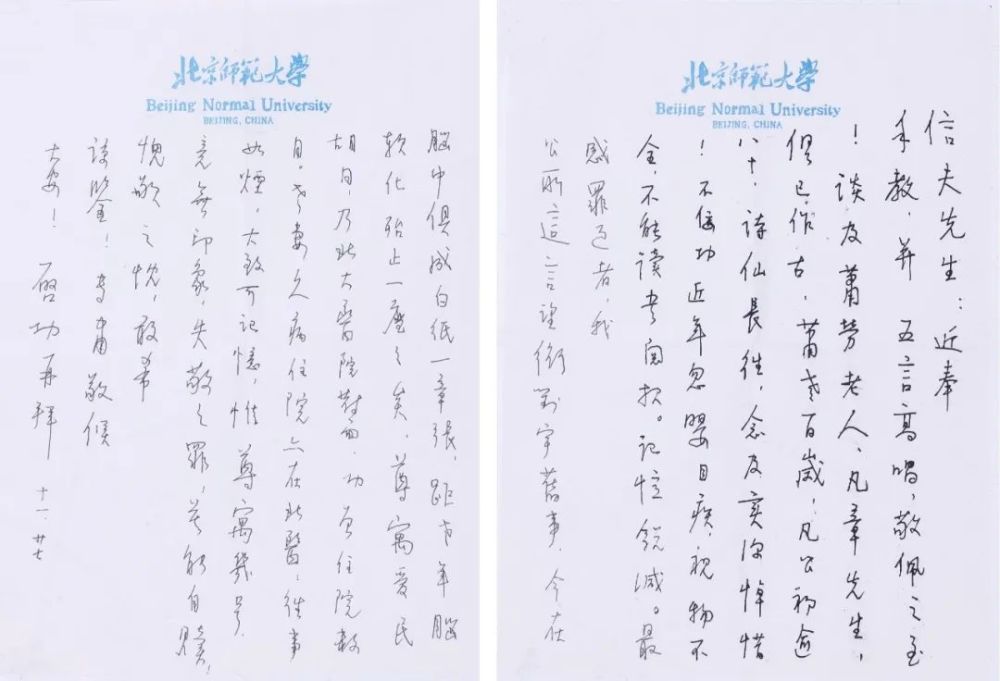 北京師範大學
Beijing Normal University
BEIJING, CHINA
信夫先生：近奉
手教，并 五言高唱，敬佩之至
！談及蕭勞老人、凡章先生，
俱已作古，蕭老百歲，凡公初逾
八十，詩仙長往，念及實深悼惜
！不佞功近年忽嬰目疾，視物不
全，不能讀書閱報。記憶銳減。最
感罪過者，我
公所這言望衡對宇舊事，今在
北京師範大學
Beijing Normal University
BEIJING, CHINA
腦中俱成白紙一張，距老年腦
軟化殆止一塵之矣，尊寓愛民
胡同，乃北大醫院對面，功曾住院數
月，老妻久病住院亦在北醫，往事
如煙，大致可記憶，惟尊寓幾號，
竟無印象，失敬之罪，能自贖，
愧歉之忱，敢希
諒鑒！專肅敬候
大安！ 啓功再拜 十一、廿七